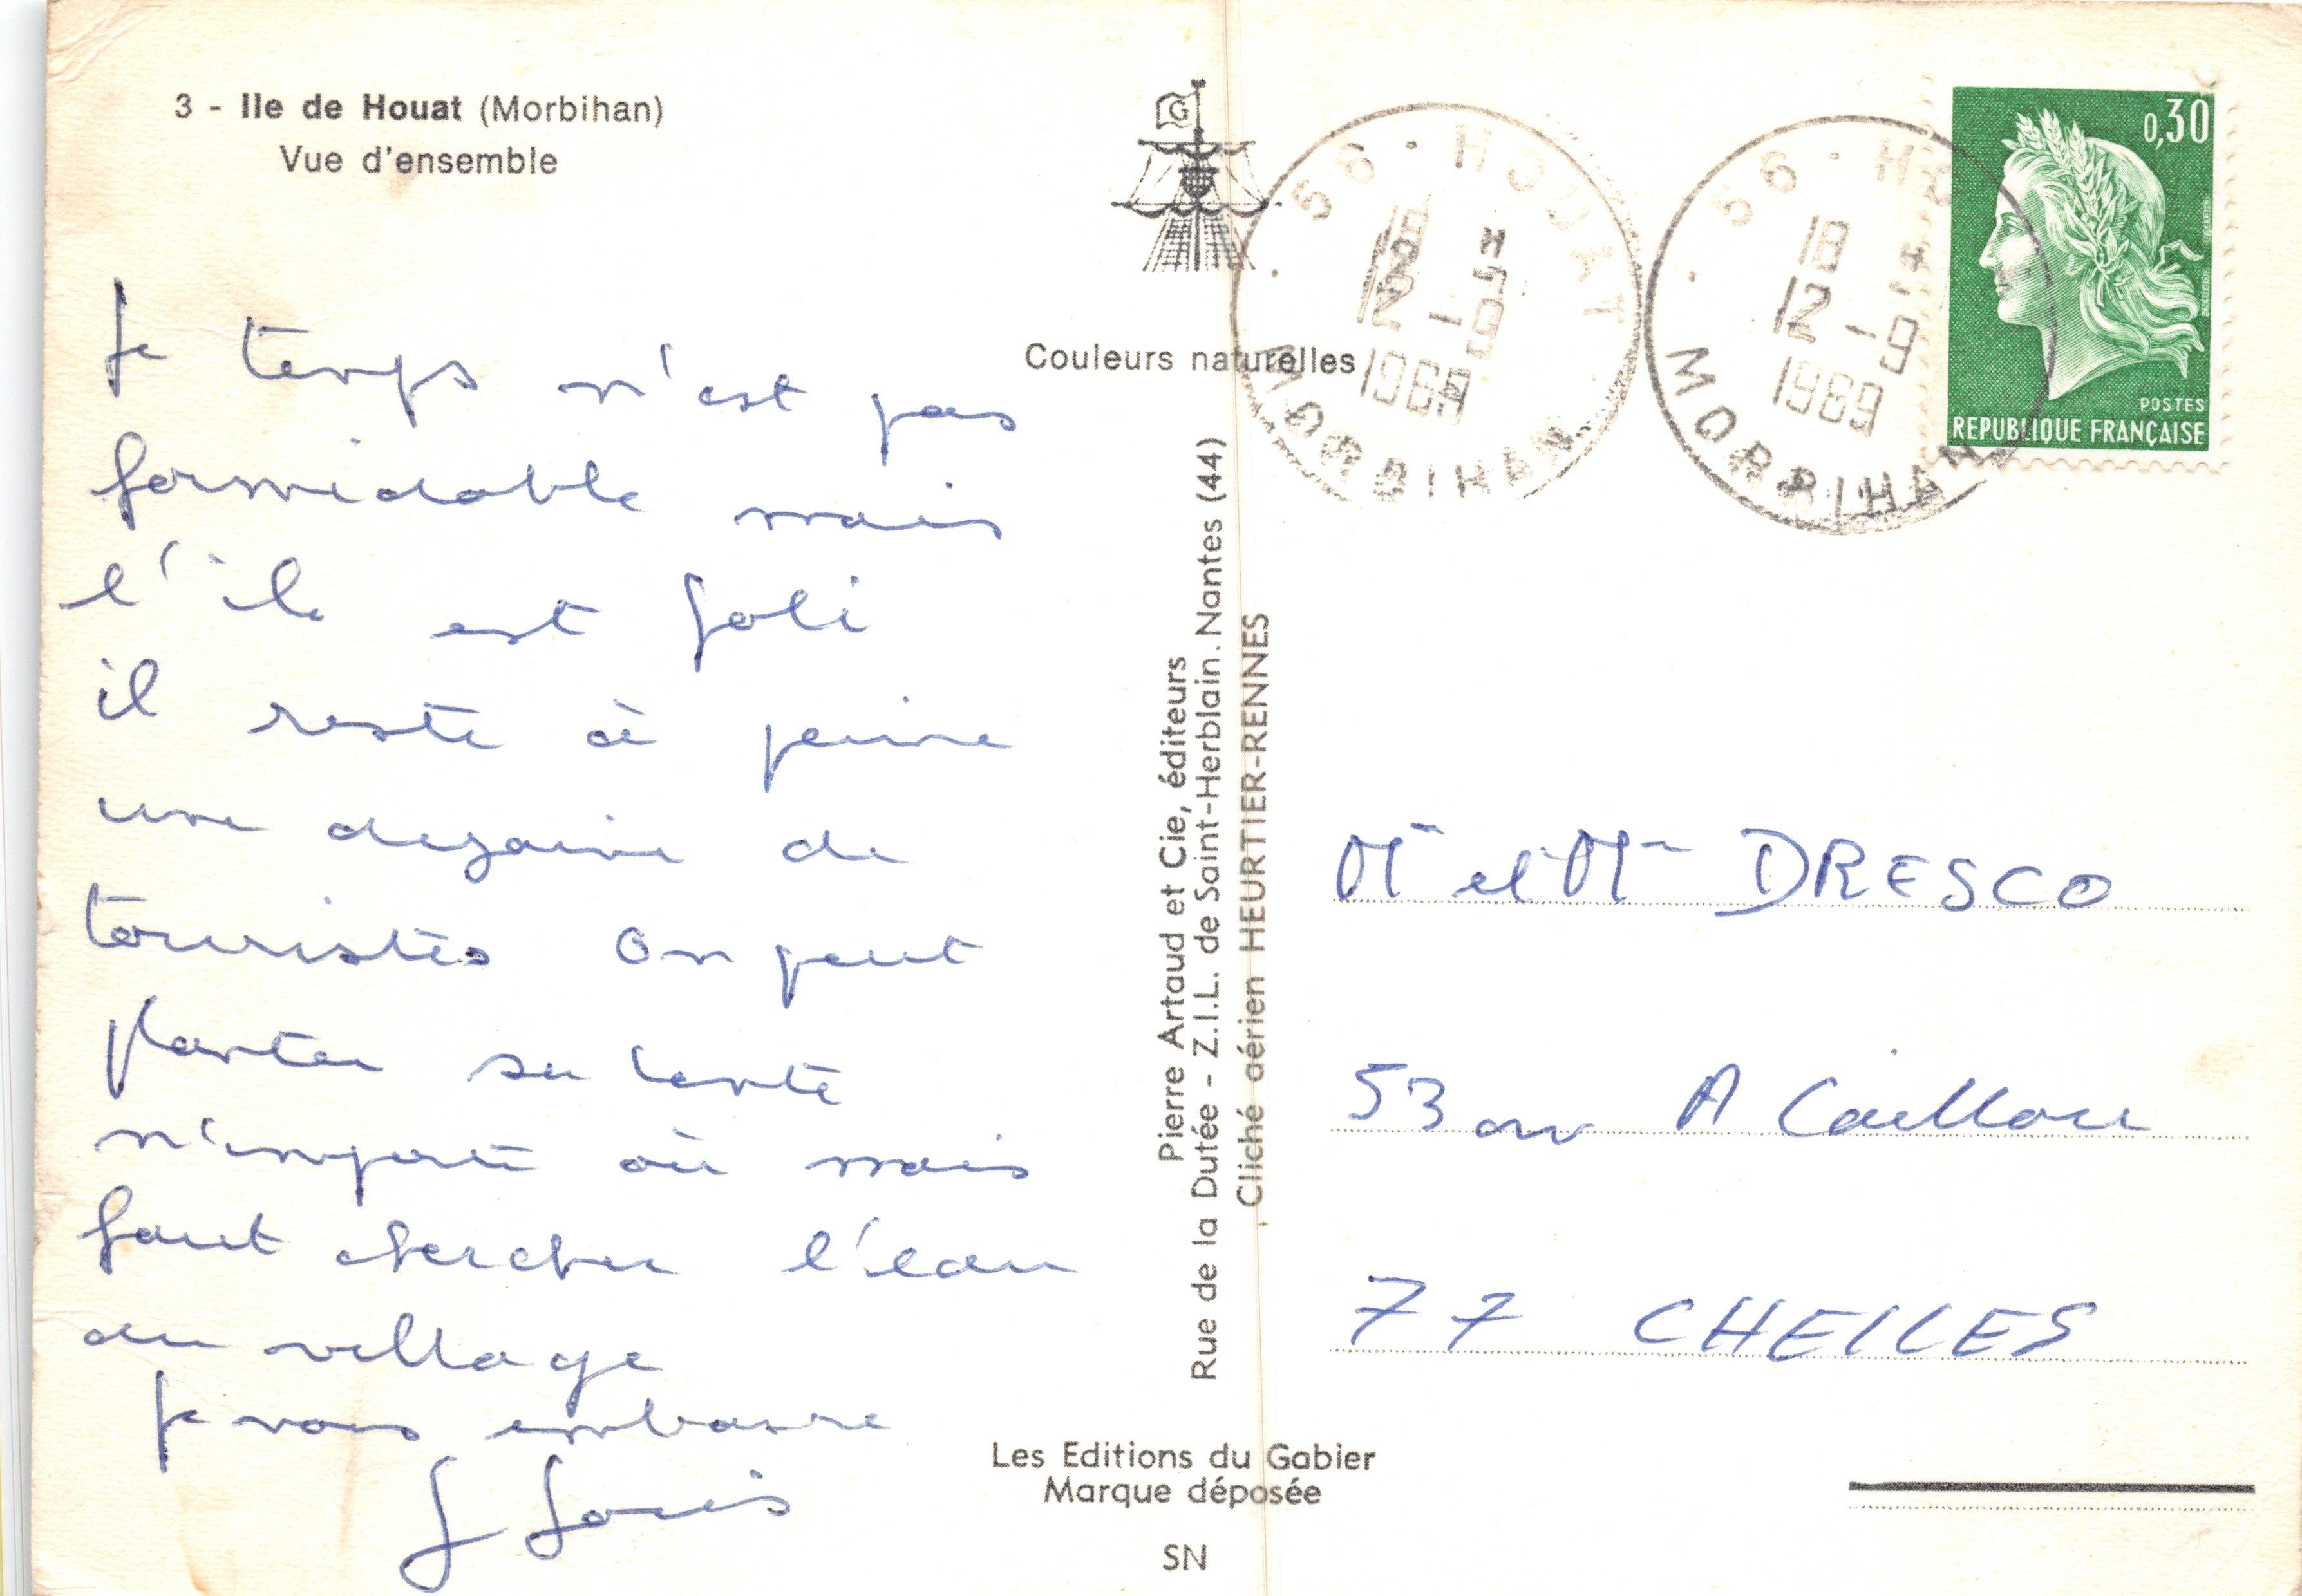 3 - Ile de Houat (Morbihan)
Vue d'ensemble
G
Couleurs naturelles
Le temps n'est pas
formidable mais
l'ile est joli
il reste à peine
une dezaine de
touristes On peut
planter sa tente
n'importe où mais
faut chercher l'eau
au village
Je vous embrasse
J Louis
Pierre Artaud et Cie, éditeurs
Rue de la Dutée - Z.I.L. de Saint-Herblain. Nantes (44)
Cliché aérien HEURTIER-RENNES
Les Editions du Gabier
Marque déposée
SN
56 - HOUAT
18 H
12 - 9
1969
MORBIHAN
56 - HO
18 H
12 - 9
1969
MORBIHAN
0,30
POSTES
REPUBLIQUE FRANÇAISE
Mr et Mme DRESCO
53 av A Caillou
77 CHELLES